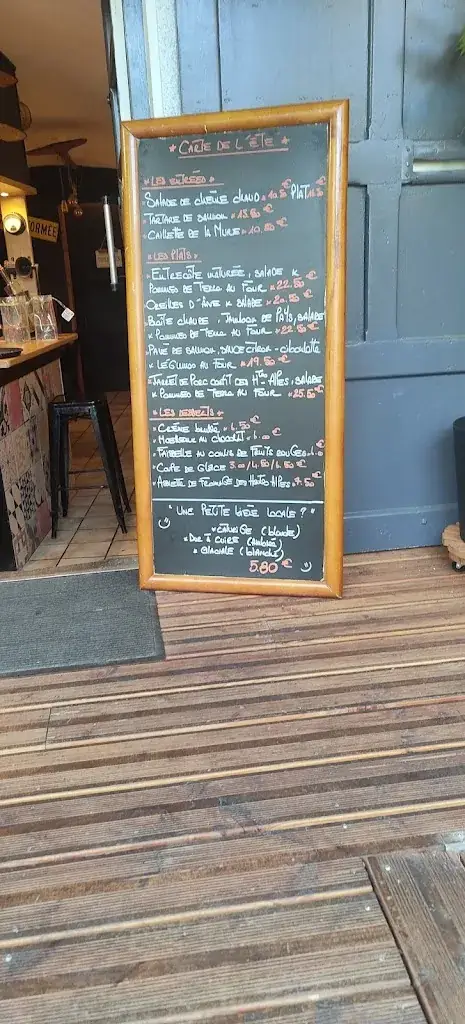 * CARTE DE L'ÉTÉ *
* LES ENTRÉES *
SALADE DE CHÈVRE CHAUD * € PLAT €
* TARTARE DE SAUMON * 13.50 €
* CAILLETTE DE LA MURE * 10.50 €
* LES PLATS *
* ENTRECÔTE MATURÉE, SALADE &
POMMES DE TERRE AU FOUR * 22.50 €
OREILLES D'ÂNE & SALADE * 20.50 €
* BOÎTE CHAUDE, JAMBON DE PAYS, SALADE
& POMMES DE TERRE AU FOUR * 22.50 €
* PAVÉ DE SAUMON, SAUCE CITRON - CIBOULETTE
& LÉGUMES AU FOUR * 19.50 €
* JARRET DE PORC CONFIT DES HTES ALPES, SALADE
& POMMES DE TERRE AU FOUR * 25.50 €
* LES DESSERTS *
* CRÈME BRULÉE * 6.50 €
* MOELLEUX AU CHOCOLAT * €
* FAISSELLE AU COULIS DE FRUITS ROUGES €
* CAFÉ DE GLACE 3.00 / 4.50 / 6.50 €
* ASSIETTE DE FROMAGE DES HAUTES ALPES * €
" UNE PETITE BIÈRE LOCALE ? "
(blonde)
* (AMBRÉE)
* GLACIALE (blanche)
5.80 €
FORMÉE